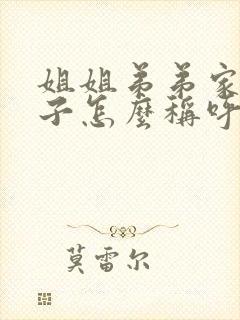 姐姐弟弟家
子怎麼稱呼
莫雷尔